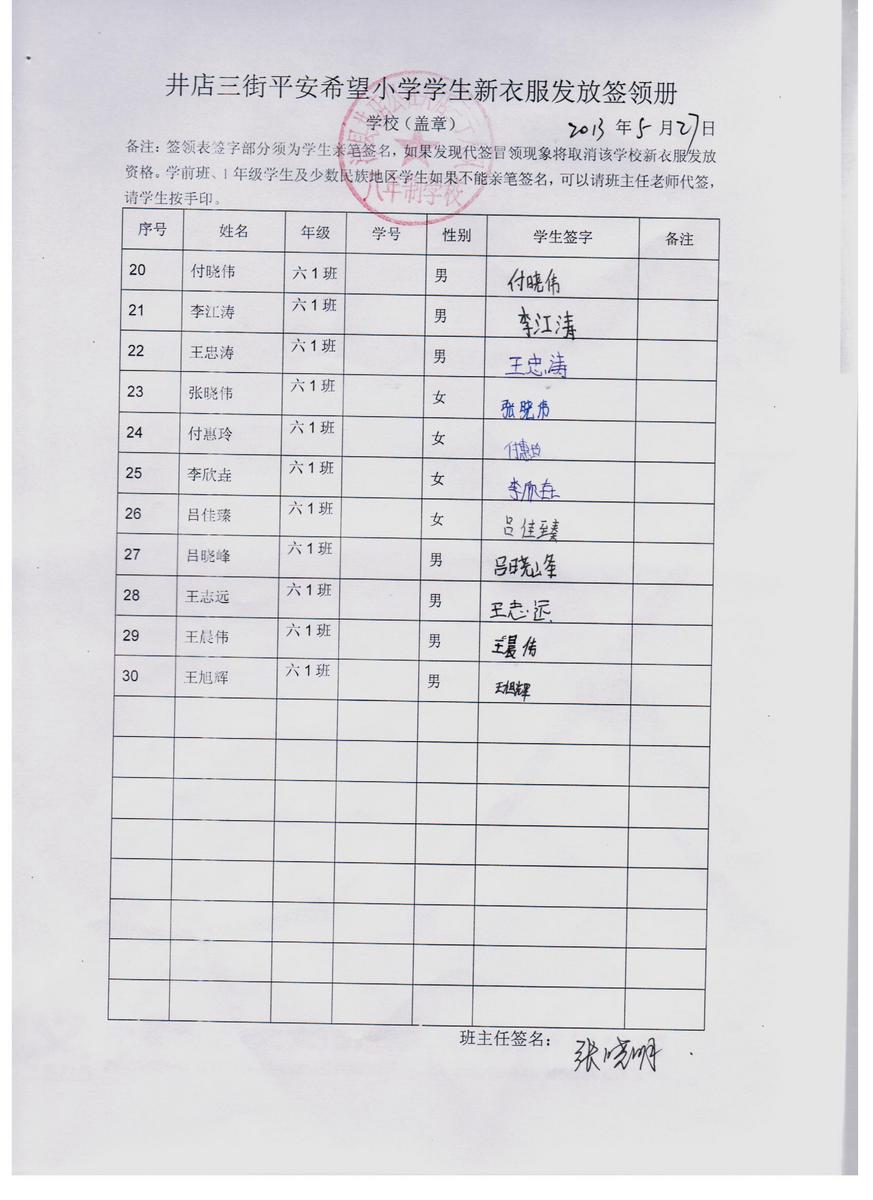 井店三街平安希望小学学生新衣服发放签领册
学校（盖章） 2013 年 5 月 27 日
备注：签领表签字部分须为学生亲笔签名，如果发现代签冒领现象将取消该学校新衣服发放
资格。学前班、1 年级学生及少数民族地区学生如果不能亲笔签名，可以请班主任老师代签，
请学生按手印。
八年制学校
序号 姓名 年级 学号 性别 学生签字 备注
20 付晓伟 六 1 班 男 付晓伟
21 李江涛 六 1 班 男 李江涛
22 王忠涛 六 1 班 男 王忠涛
23 张晓伟 六 1 班 女 张晓伟
24 付惠玲 六 1 班 女 付惠玲
25 李欣垚 六 1 班 女 李欣垚
26 吕佳臻 六 1 班 女 吕佳臻
27 吕晓峰 六 1 班 男 吕晓峰
28 王志远 六 1 班 男 王志远
29 王晨伟 六 1 班 男 王晨伟
30 王旭辉 六 1 班 男 王旭辉
班主任签名： 张晓明